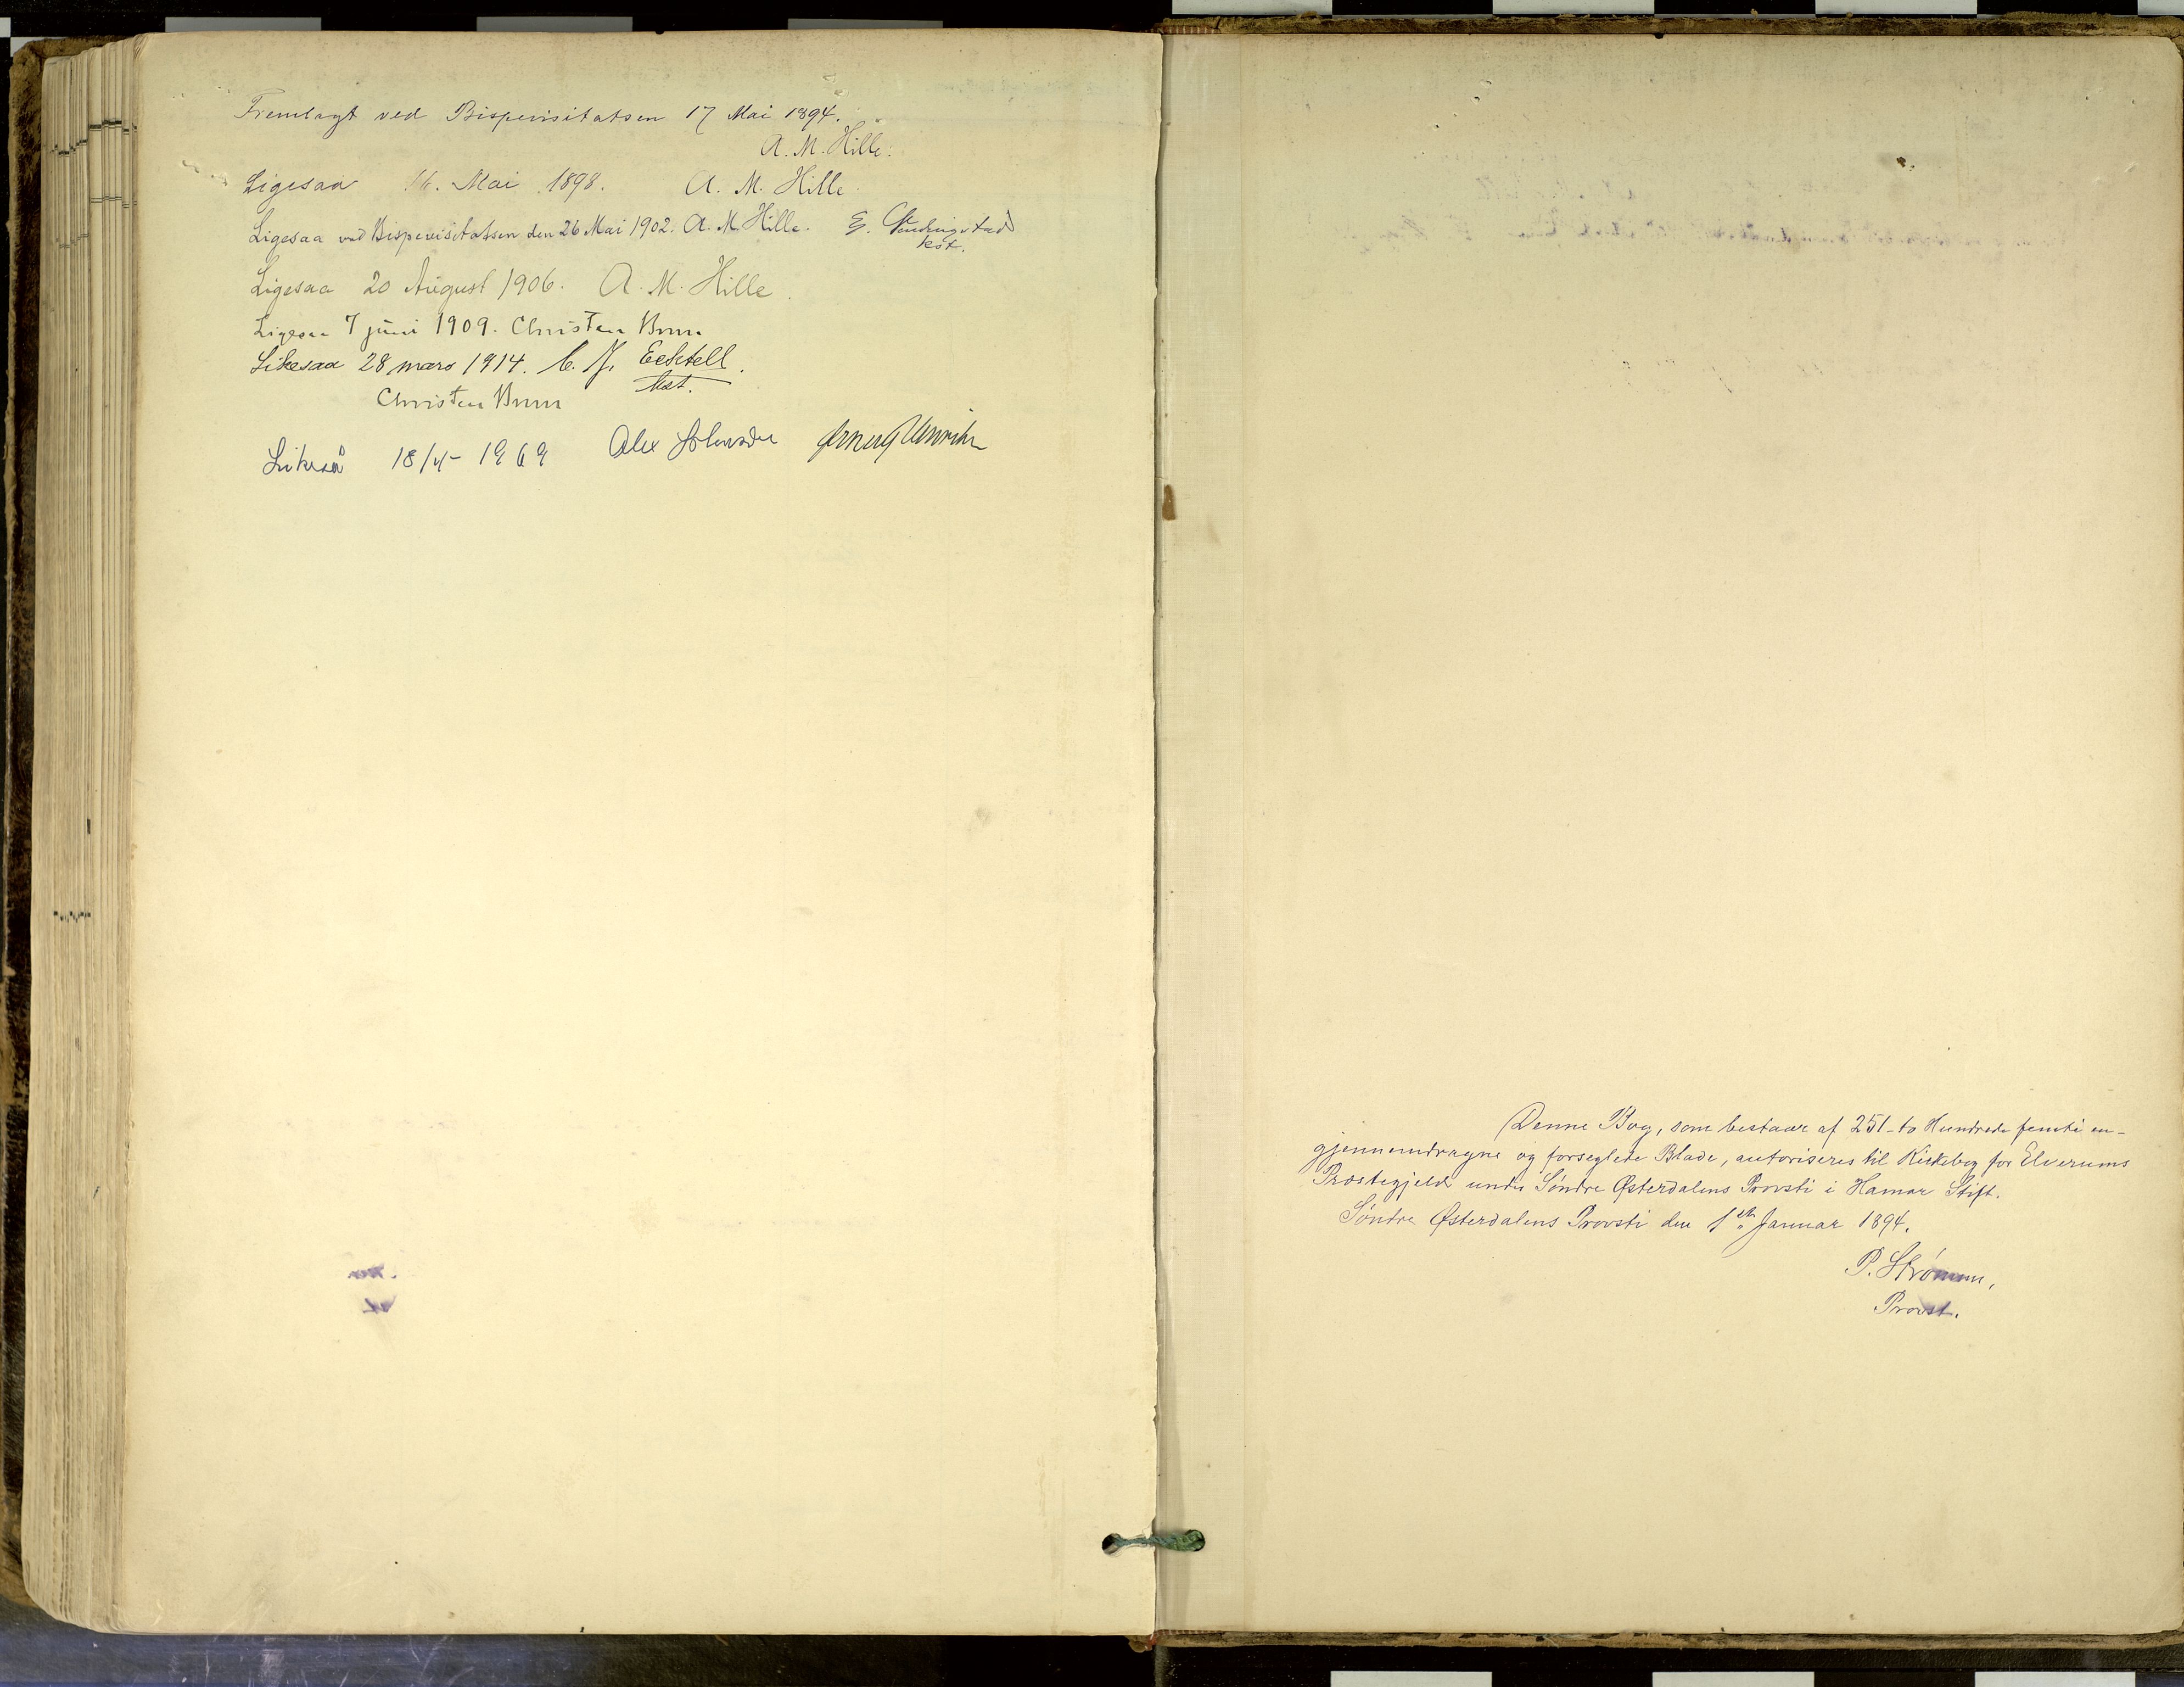 Fremlagt ved Bispevisitatsen 17 Mai 1894.
A. M. Hille.
Ligesaa 16. Mai 1898. A. M. Hille.
Ligesaa ved Bispevisitatsen den 26 Mai 1902. A. M. Hille. E.
kst.
Ligesaa 20 August 1906. A. M. Hille.
Ligesaa 7 juni 1909. Christen Brun
Likesaa 28 mars 1914. C. J.
kst.
Christen Brun
Likeså 1969 Alex Johnson
Denne Bog, som bestaar af 251 - to Hundrede femti en -
gjennemdragne og forseglede Blade, autoriseres til Kirkebog for Elverums
Præstegjeld under Søndre Østerdalens Provsti i Hamar Stift.
Søndre Østerdalens Provsti den 1ste Januar 1894.
P. Strømme,
Provst.